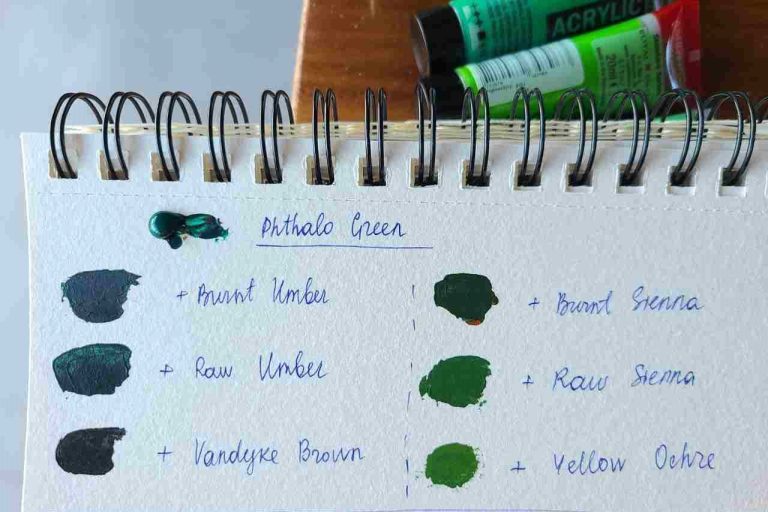 ACRYLIC
20ml
Phthalo Green
+ Burnt Umber
+ Raw Umber
+ Vandyke Brown
+ Burnt Sienna
+ Raw Sienna
+ Yellow Ochre